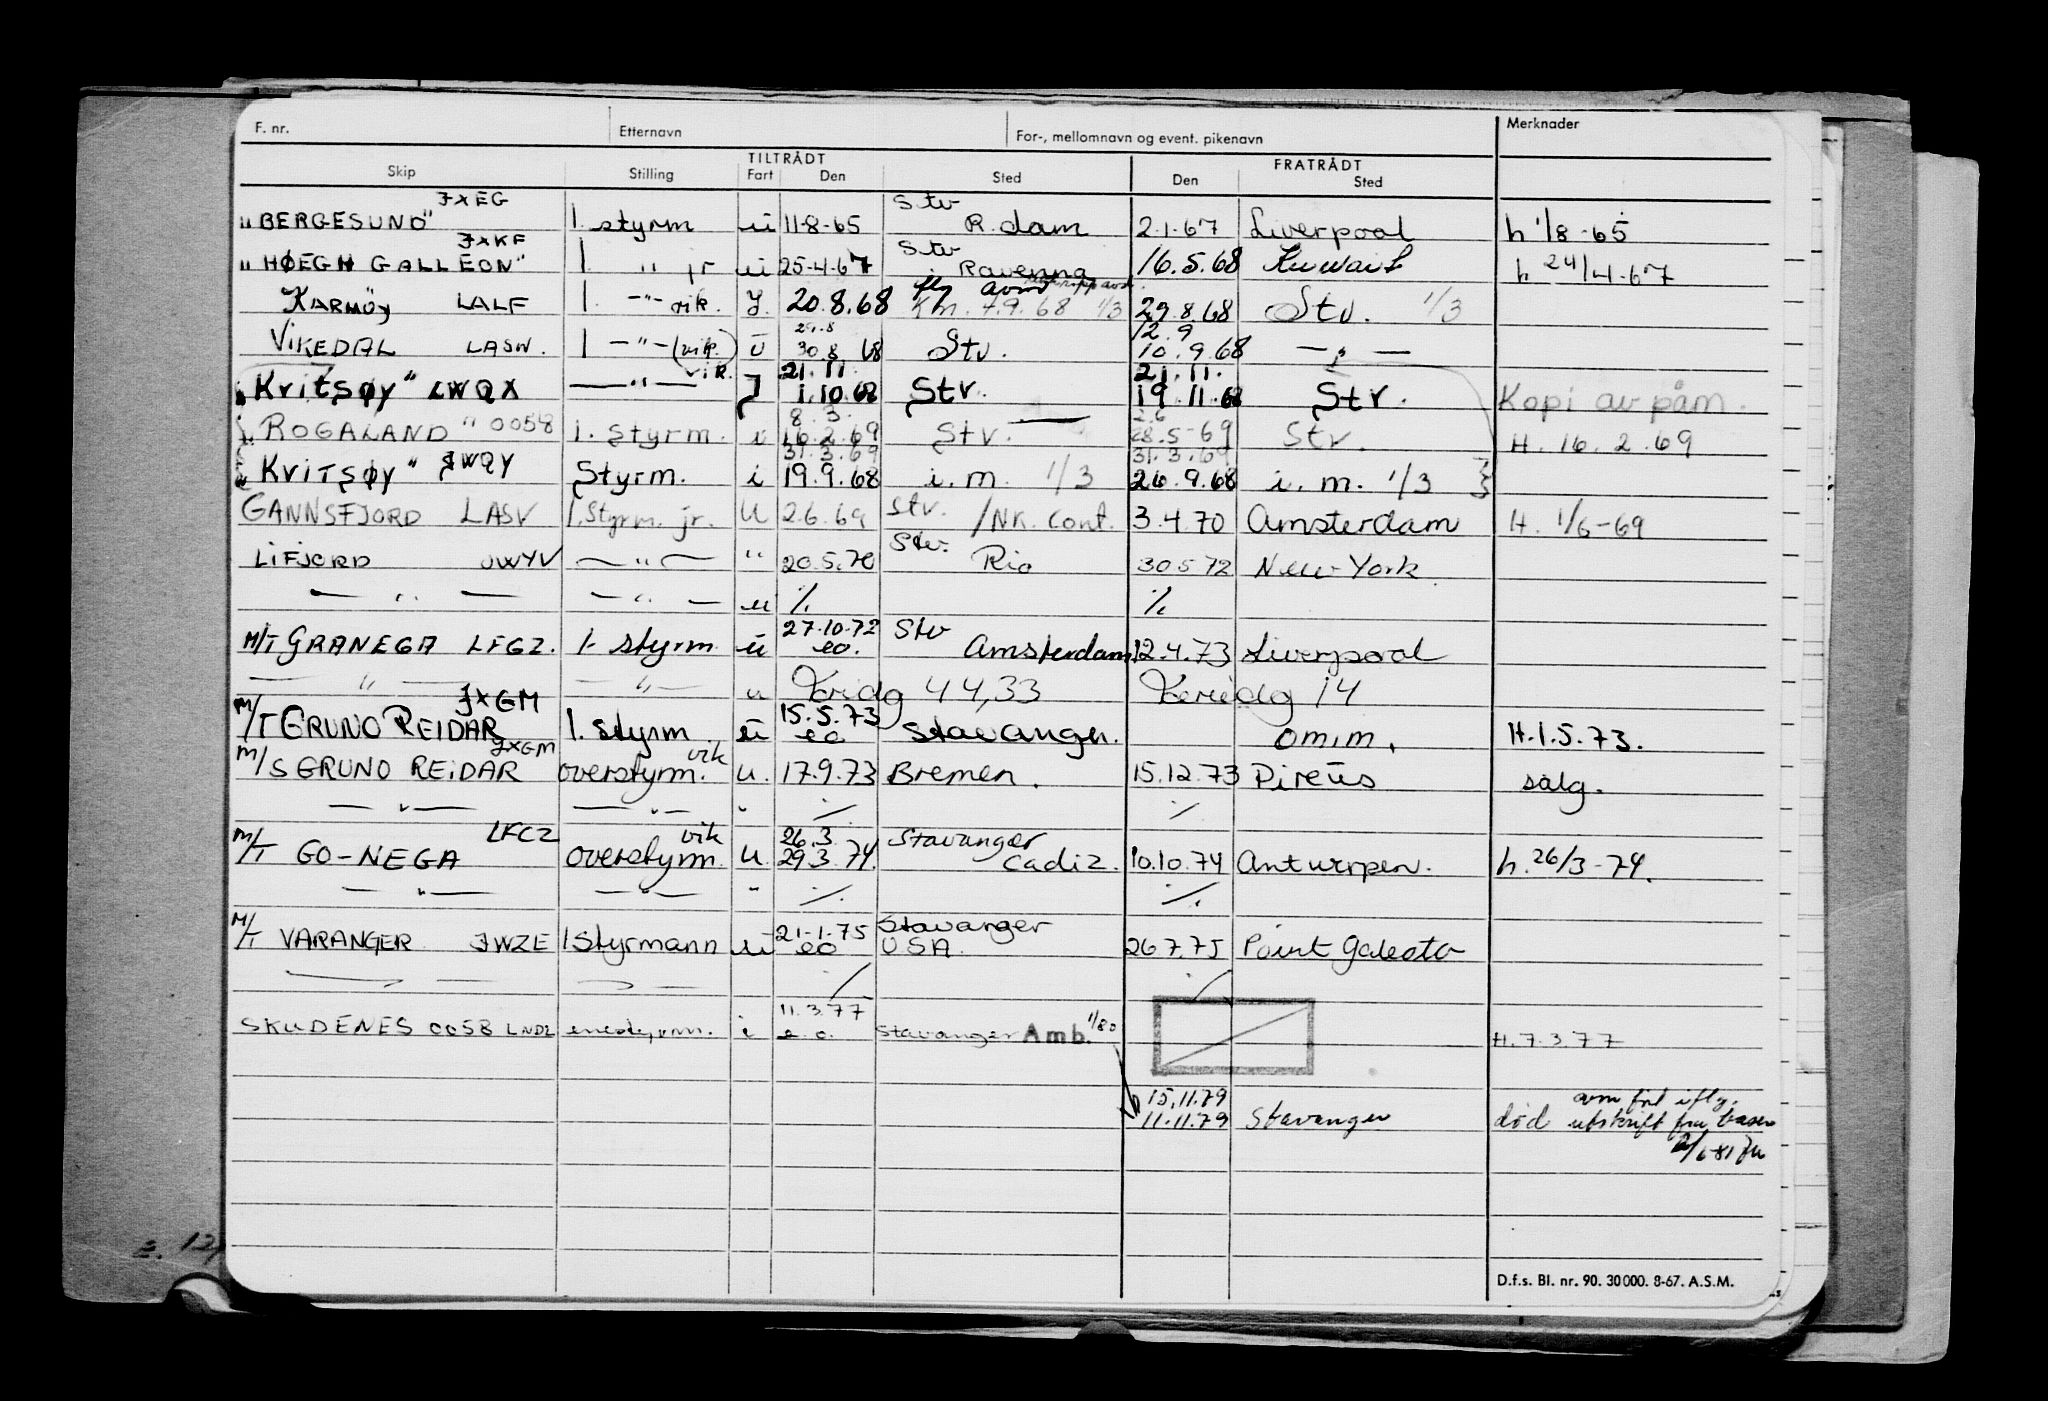 F. nr. Etternavn For-, mellomnavn og event. pikenavn Merknader
TILTRÅDT FRATRÅDT
Skip Stilling Fart Den Sted Den Sted
JXEG Stv
"BERGESUND" 1. styrm ü 11-8-65 R.dam 2.1.67 Liverpool h 1/8-65
JXKF Stv
"HØEGH GALLEON" 1. " jr ü 25-4-67 Ravenna 16.5.68 Kuwait h 24/4-67
KARMØY LALF 1. -"- vik. J. 20.8.68 29.8.68 Stv. 1/3
29.8 12.9
VIKEDAL LASW. 1 -"- (vik.) ü 30.8 68 Stv. 10.9.68 -"-
vik. 21.11 21.11.
"Kvitsøy" LWQX -"- J 1.10.68 Stv. 19.11.68 Stv. Kopi av påm.
8.3. 2.6
"ROGALAND" 0058 1. styrm. i 16.2.69 Stv. 28.5-69 Stv. H. 16.2.69
31.3.69 31.3.69
"Kvitsøy" JWQY Styrm. i 19.9.68 i.m. 1/3 26.9.68 i.m. 1/3
GANNSFJORD LASV 1.Styrm. jr. U 2.6.69 Stv. /NK. Cont. 3.4.70 Amsterdam H. 1/6-69
Stv.
LIFJORD JWYV -"- " 20.5.70 Rio 30 5 72 New-York
- " - - " - u % %
27.10.72 Stv
M/T GRANEGA LFGZ. 1. styrm. ü eo. Amsterdam 12.4.73 Liverpool
- " - - " - u 44,33 14
JXGM 15.5.73
M/T GRUNO REIDAR 1. styrm ü eo Stavanger. omim. H.1.5.73.
JXGM vik
M/S GRUNO REIDAR overstyrm. u. 17.9.73 Bremen. 15.12.73 Pireüs salg.
- " - - " - " % %
LFCZ vik 26.3 Stavanger
M/T GO-NEGA overstyrm. u. 29.3.74. Cadiz. 10.10.74 Antwerpen. h. 26/3-74.
- " - - " - " % %
21-1-75 Stavanger
M/T VARANGER JWZE 1 Styrmann ü eo USA. 26 7.75 Point Galeota
11.3.77
SKUDENES 0058 LNDL enestyrm. i e.o. Stavanger Amb. 1/80 H.7.3.77
15.11.79
11.11.79 Stavanger død utskrift fra basen
D.f.s. Bl. nr. 90. 30000. 8-67. A.S.M.